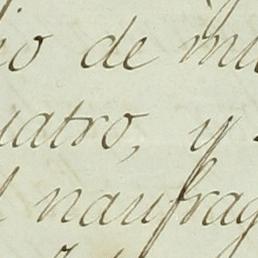 io de mi
uatro, y
l naufrag